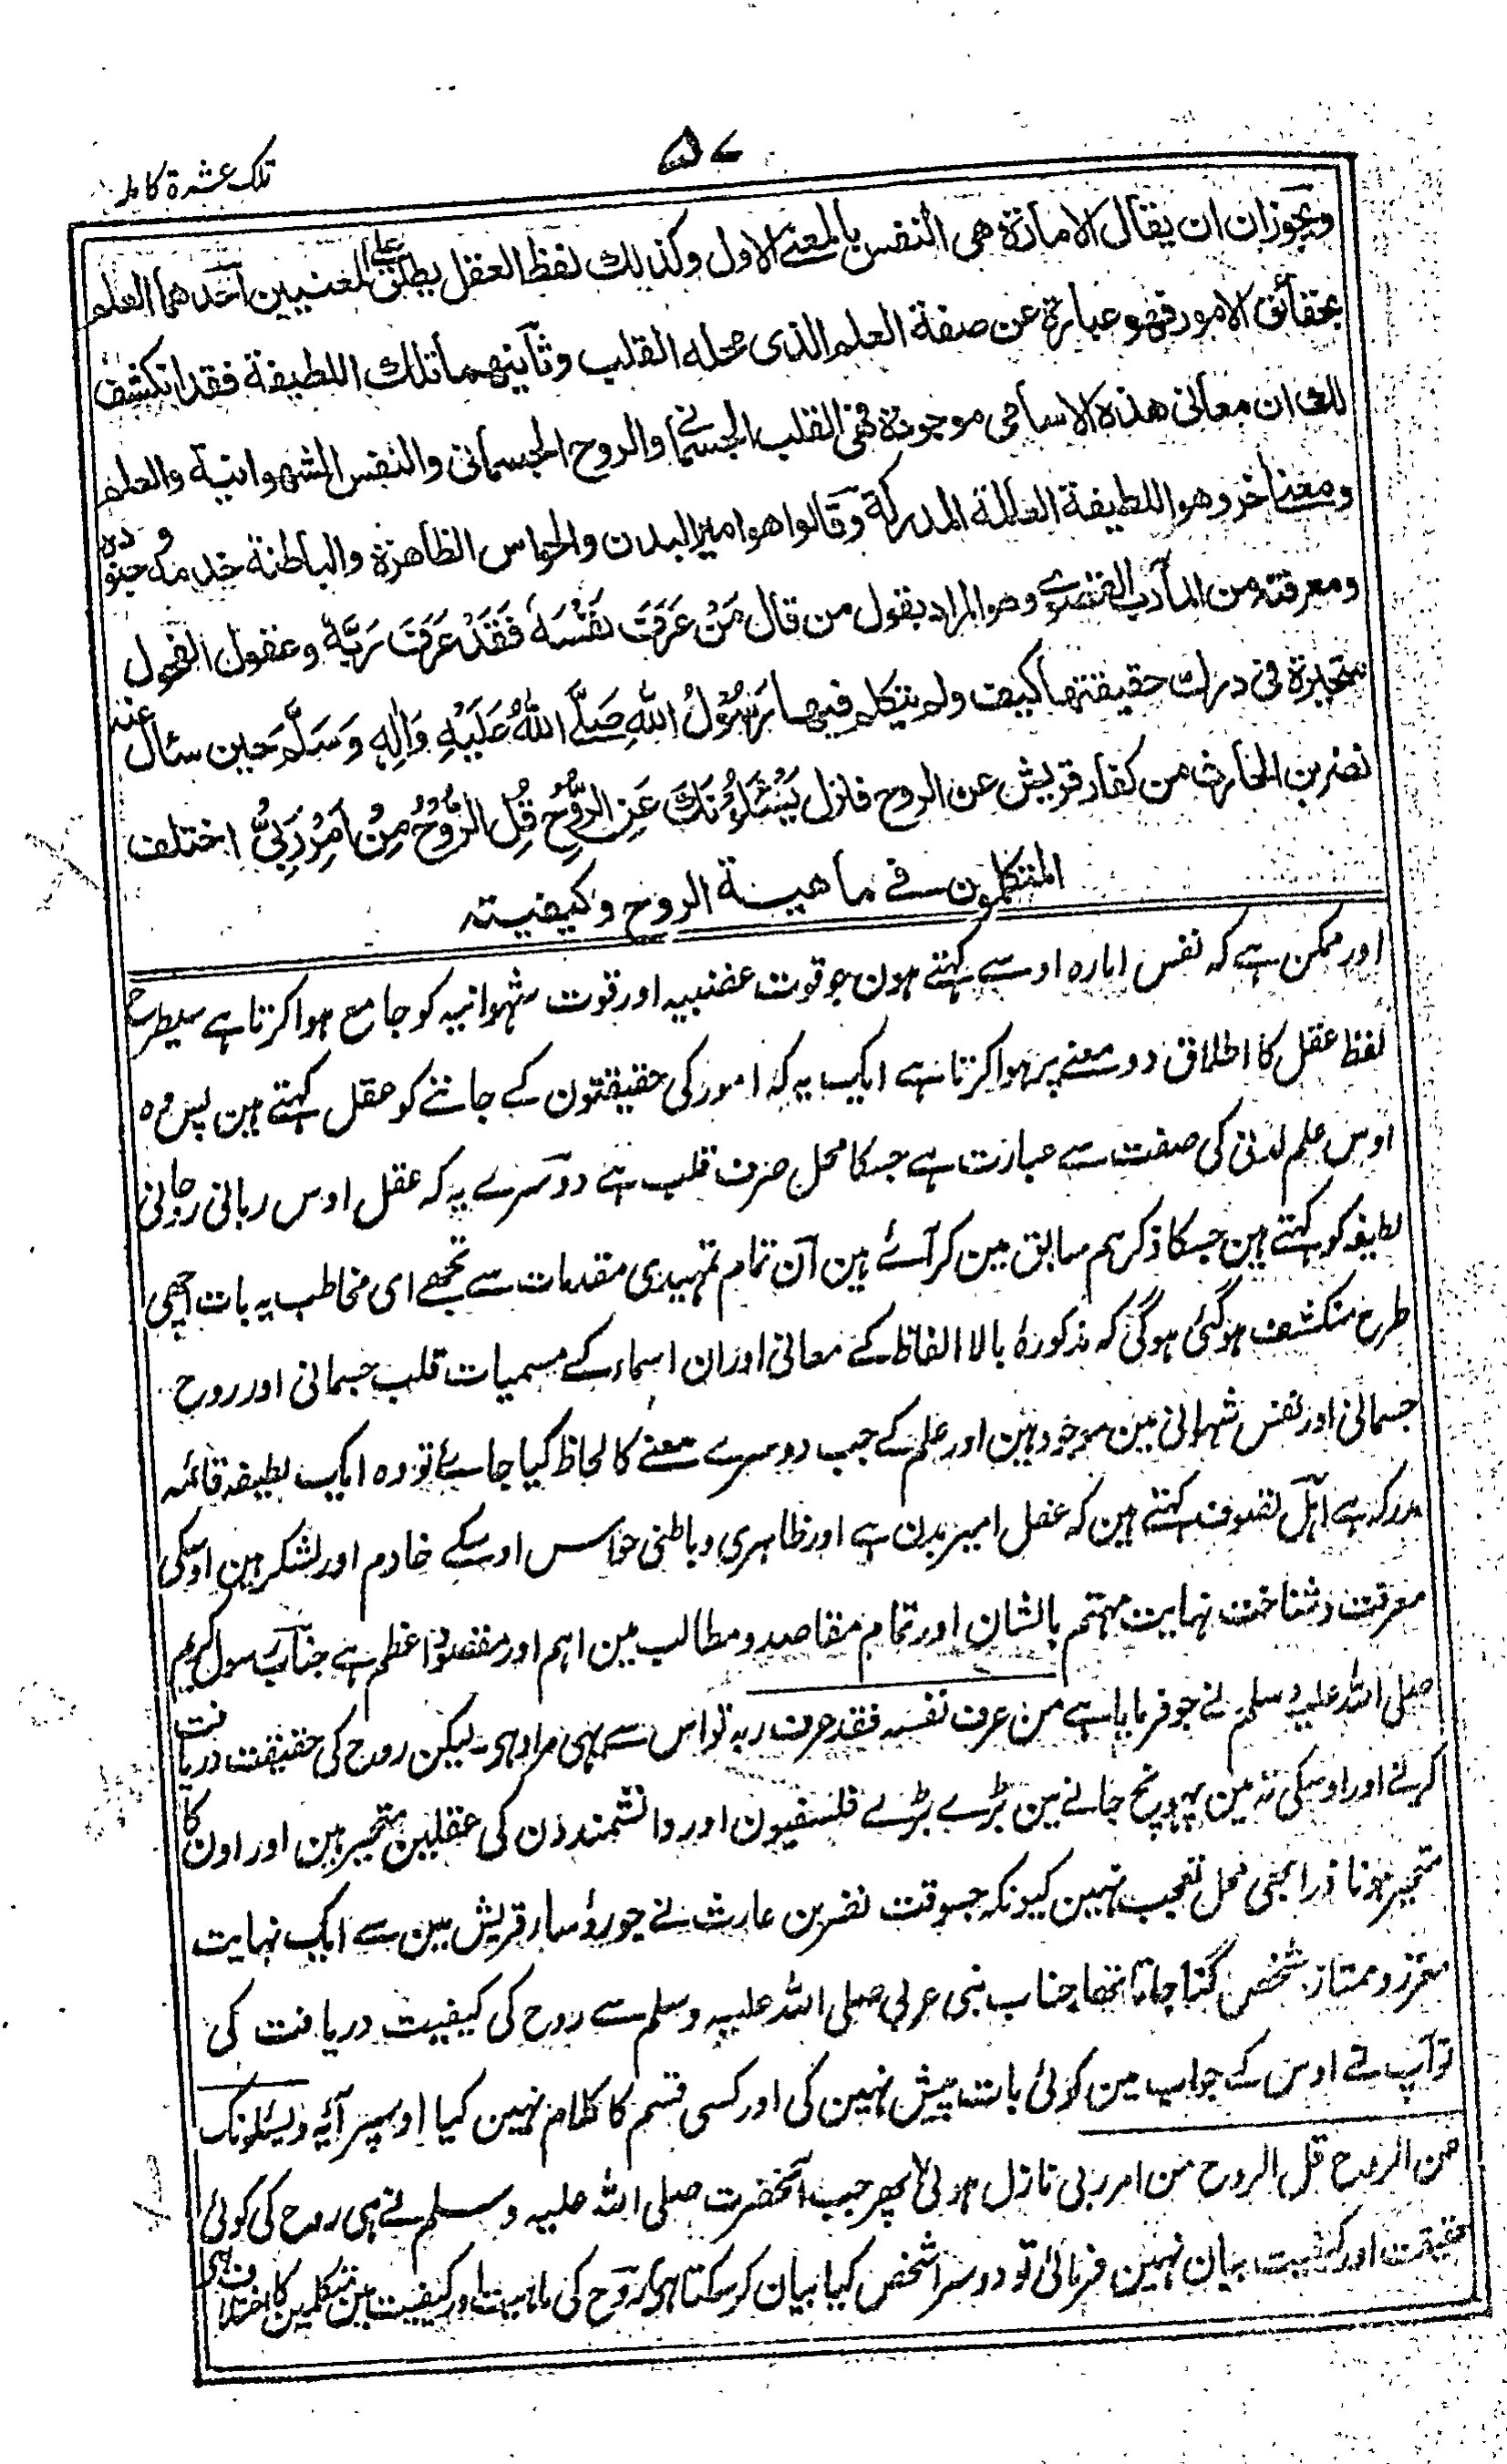 تلک عشرة کاملہ
۵۷
ویجوزان ان یقال الامارة هی النفس بالمعنے الاول وکذلك لفظ العقل یطلق علی المعنیین احدهما العلم
بحقائق الامور فهو عبارة عن صفة العلم الذی محله القلب وثانیهما تلك اللطیفة فقد انکشف
لك ان معانی هذه الاسامی موجودة فهی القلب الجسمانی والروح الجسمانی والنفس الشهوانیة والعلم
ومعنا خر وهو اللطیفة العالمة المدرکة وقالوا هو امیر البدن والحواس الظاهرة والباطنة خدمه وجنوده
ومعرفته من المآرب القصوے وهو المراد بقول من قال مَنْ عَرَفَ نَفْسَهٗ فَقَدْ عَرَفَ رَبَّهٗ وعقول الفحول
متحیرة فی درك حقیقتها کیف ولم یتکلم فیها رَسُوْلُ اللهِ صَلَّے اللهُ عَلَیْهِ وَاٰلِهٖ وَسَلَّمَ حین سئال عنه
نضر بن الحارث من کفار قریش عن الروح فانزل یَسْئَلُوْنَكَ عَنِ الرُّوْحِ قُلِ الرُّوْحُ مِنْ اَمْرِ رَبِّیْ اختلف
المتکلمون فے ماهیة الروح وکیفیته
اور ممکن ہے کہ نفس امارہ اوسے کہتے ہون جو قوت غضبیہ اور قوت شہوانیہ کو جامع ہوا کرتا ہے سیطرح
لفظ عقل کا اطلاق دو معنے پر ہوا کرتا ہے ایک یہ کہ امور کی حقیقتون کے جاننے کو عقل کہتے ہین پس وہ
اوس علم لدنی کی صفت سے عبارت ہے جسکا محل صرف قلب ہے دوسرے یہ کہ عقل اوس ربانی روحانی
لطیفہ کو کہتے ہین جسکا ذکر ہم سابق مین کر آئے ہین ان تمام تمہیدی مقدمات سے تجھے ای مخاطب یہ بات اچھی
طرح منکشف ہو گئی ہوگی کہ مذکورۂ بالا الفاظ کے معانی اور ان اسماء کے مسمیات قلب جسمانی اور روح
جسمانی اور نفس شہوانی مین موجود ہین اور علم کے جب دوسرے معنے کا لحاظ کیا جاے تو وہ ایک لطیفہ قائمہ
مدرکہ ہے اہل تصوف کہتے ہین کہ عقل امیر بدن ہے اور ظاہری و باطنی حواس اوسکے خادم اور لشکر ہین اوسکی
معرفت و شناخت نہایت مہتم بالشان اور تمام مقاصد و مطالب مین اہم اور مقصود اعظم ہے جناب رسول کریم
صلی اللہ علیہ وسلم نے جو فرمایا ہے من عرف نفسہ فقد عرف ربہ تو اس سے یہی مراد ہی۔ لیکن روح کی حقیقت دریافت
کرنے اور اوسکی تہ مین پہونچ جانے مین بڑے بڑے فلسفیون اور دانشمندون کی عقلین متحیر ہین اور اون کا
متحیر ہونا ذرا بھی محل تعجب نہین کیونکہ جسوقت نضر بن حارث نے جو رؤسار قریش مین سے ایک نہایت
معزز و ممتاز شخص گنا جاتا تھا جناب نبی عربی صلی اللہ علیہ وسلم سے روح کی کیفیت دریافت کی
تو آپ نے اوس کے جواب مین کوئی بات پیش نہین کی اور کسی قسم کا کلام نہین کیا اوسپر آیہ ویسئلونک
عن الروح قل الروح من امر ربی نازل ہوئی پھر جب آنحضرت صلی اللہ علیہ وسلم نے ہی روح کی کوئی
حقیقت اور کیفیت بیان نہین فرمائی تو دوسرا شخص کیا بیان کر سکتا ہی روح کی ماہیت اور کیفیت مین متکلمین کا اختلاف ہی